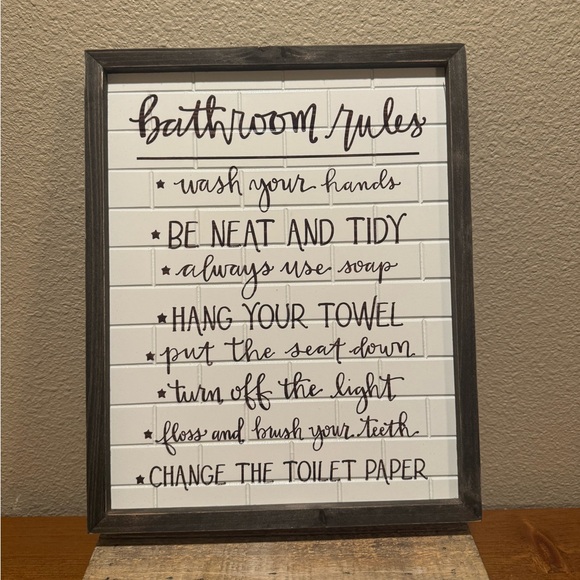 bathroom rules
★ wash your hands
★ BE NEAT AND TIDY
★ always use soap
★ HANG YOUR TOWEL
★ put the seat down
★ turn off the light
★ floss and brush your teeth
★ CHANGE THE TOILET PAPER